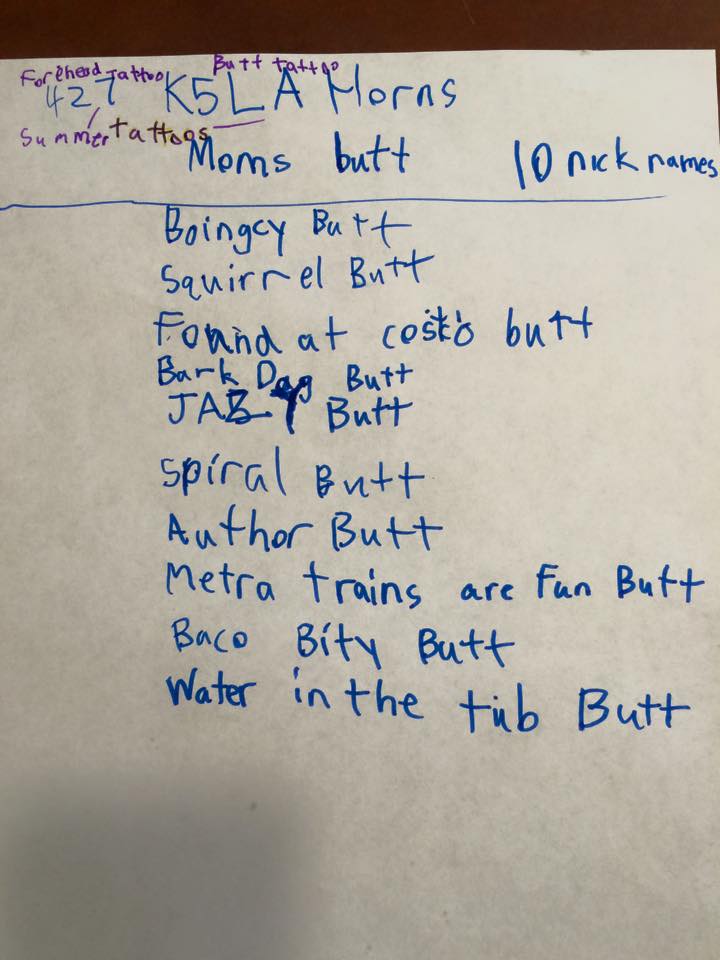 Forehead Tattoo Butt tattoo
427 K5LA Horns
Summer tattoos
Moms butt 10 nick names
Boingcy Butt
Squirrel Butt
Found at costco butt
Bark Dog Butt
JAB Y Butt
Spiral Butt
Author Butt
Metra trains are Fun Butt
Baco Bity Butt
Water in the tub Butt